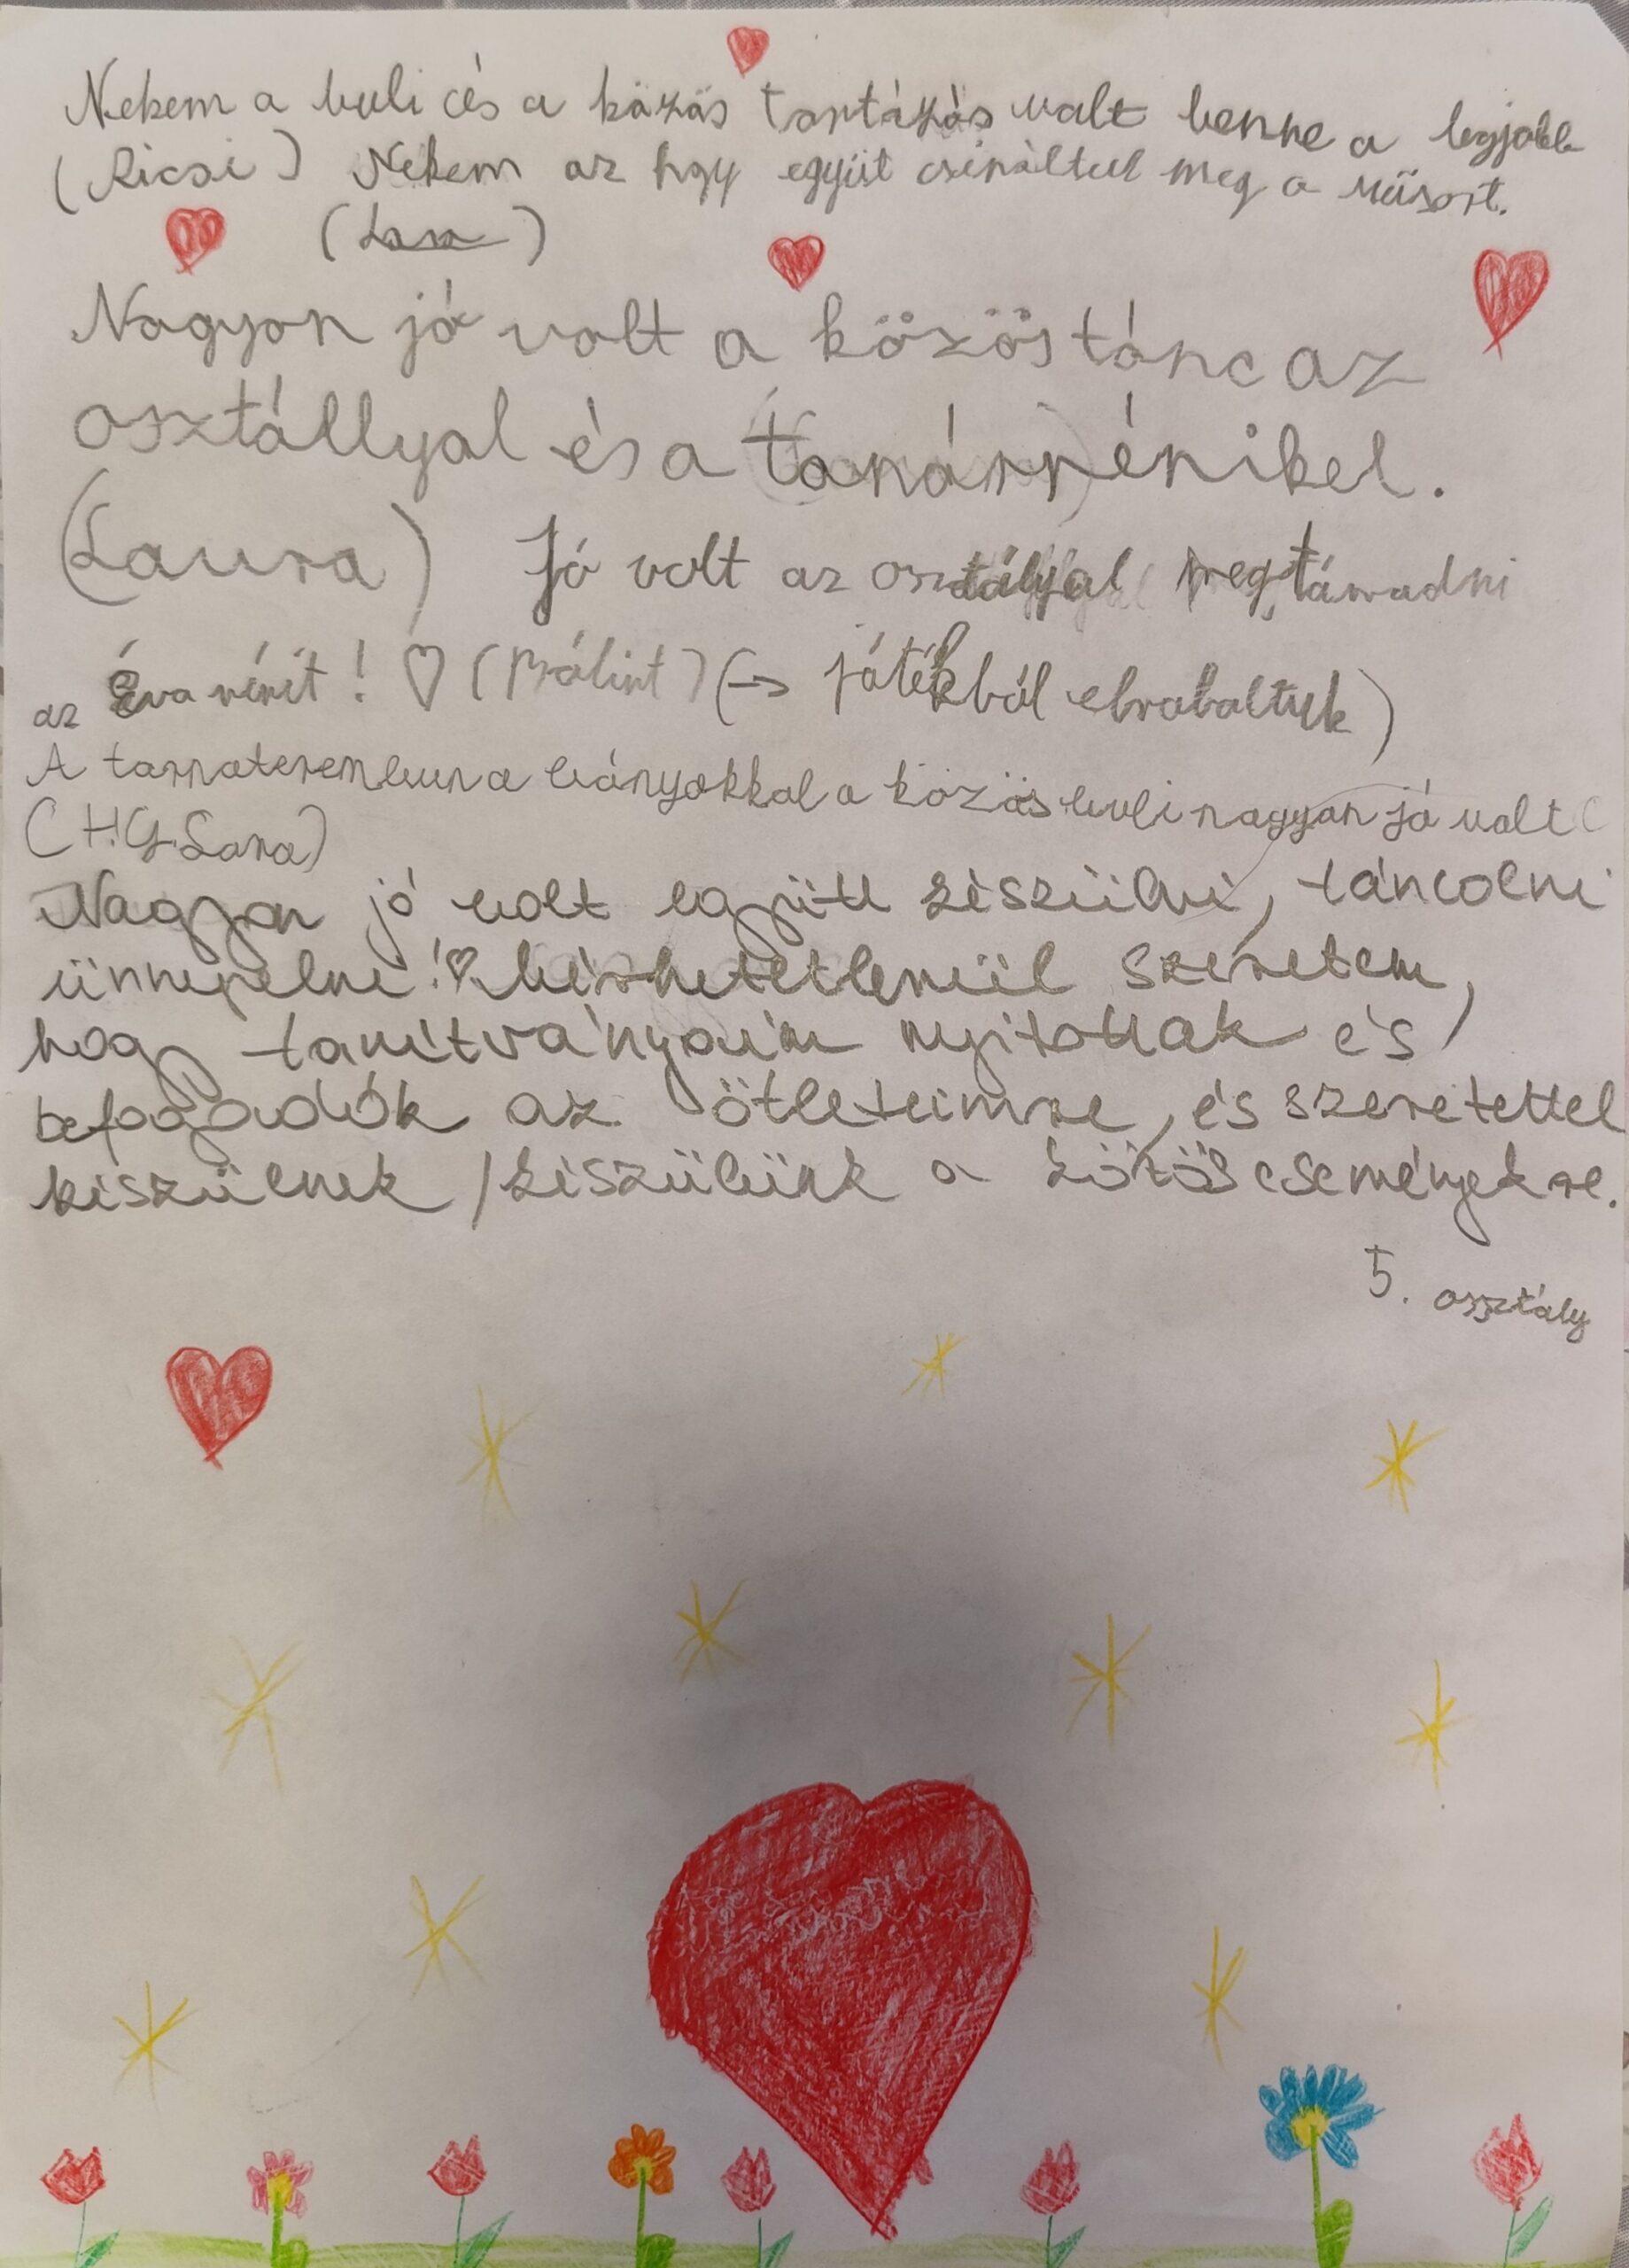 Nekem a buli és a közös tortázás volt benne a legjobb
(Ricsi) Nekem az hgy együt csináltuk meg a műsort.
(Lara)
Nagyon jó volt a közös tánc az
osztállyal és a tanárrénikel.
(Laura) Jó volt az osztályal megtámadni
az Éva nénit! ♡ (Bálint) (→ játékból elraboltuk)
A tornateremben a leányokkal a közös buli nagyon jó volt
(H.G.Lara)
Nagyon jó volt együtt készülni, táncolni
ünnepelni!♡ Mérhetetlenül szeretem,
hogy tanítványaim nyitottak és
befogadók az ötleteimre, és szeretettel
készülnek /készülünk a közös eseményekre.
5. osztály